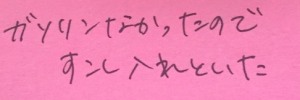 ガソリンなかったので
すこし入れといた